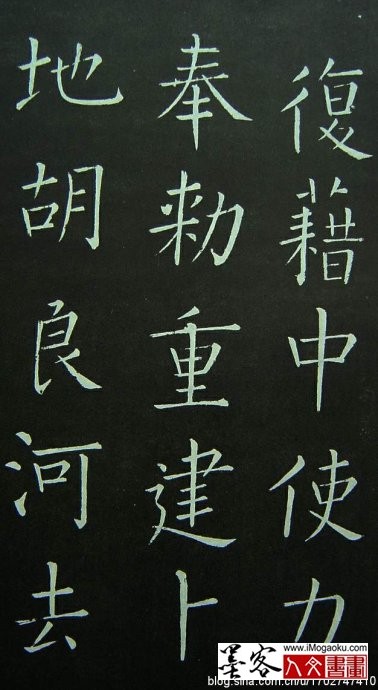 復藉中使力
奉勑重建卜
地胡良河去
墨客
www.iMogaoku.com
人文書畫
blog.sina.com.cn/u/1702747410